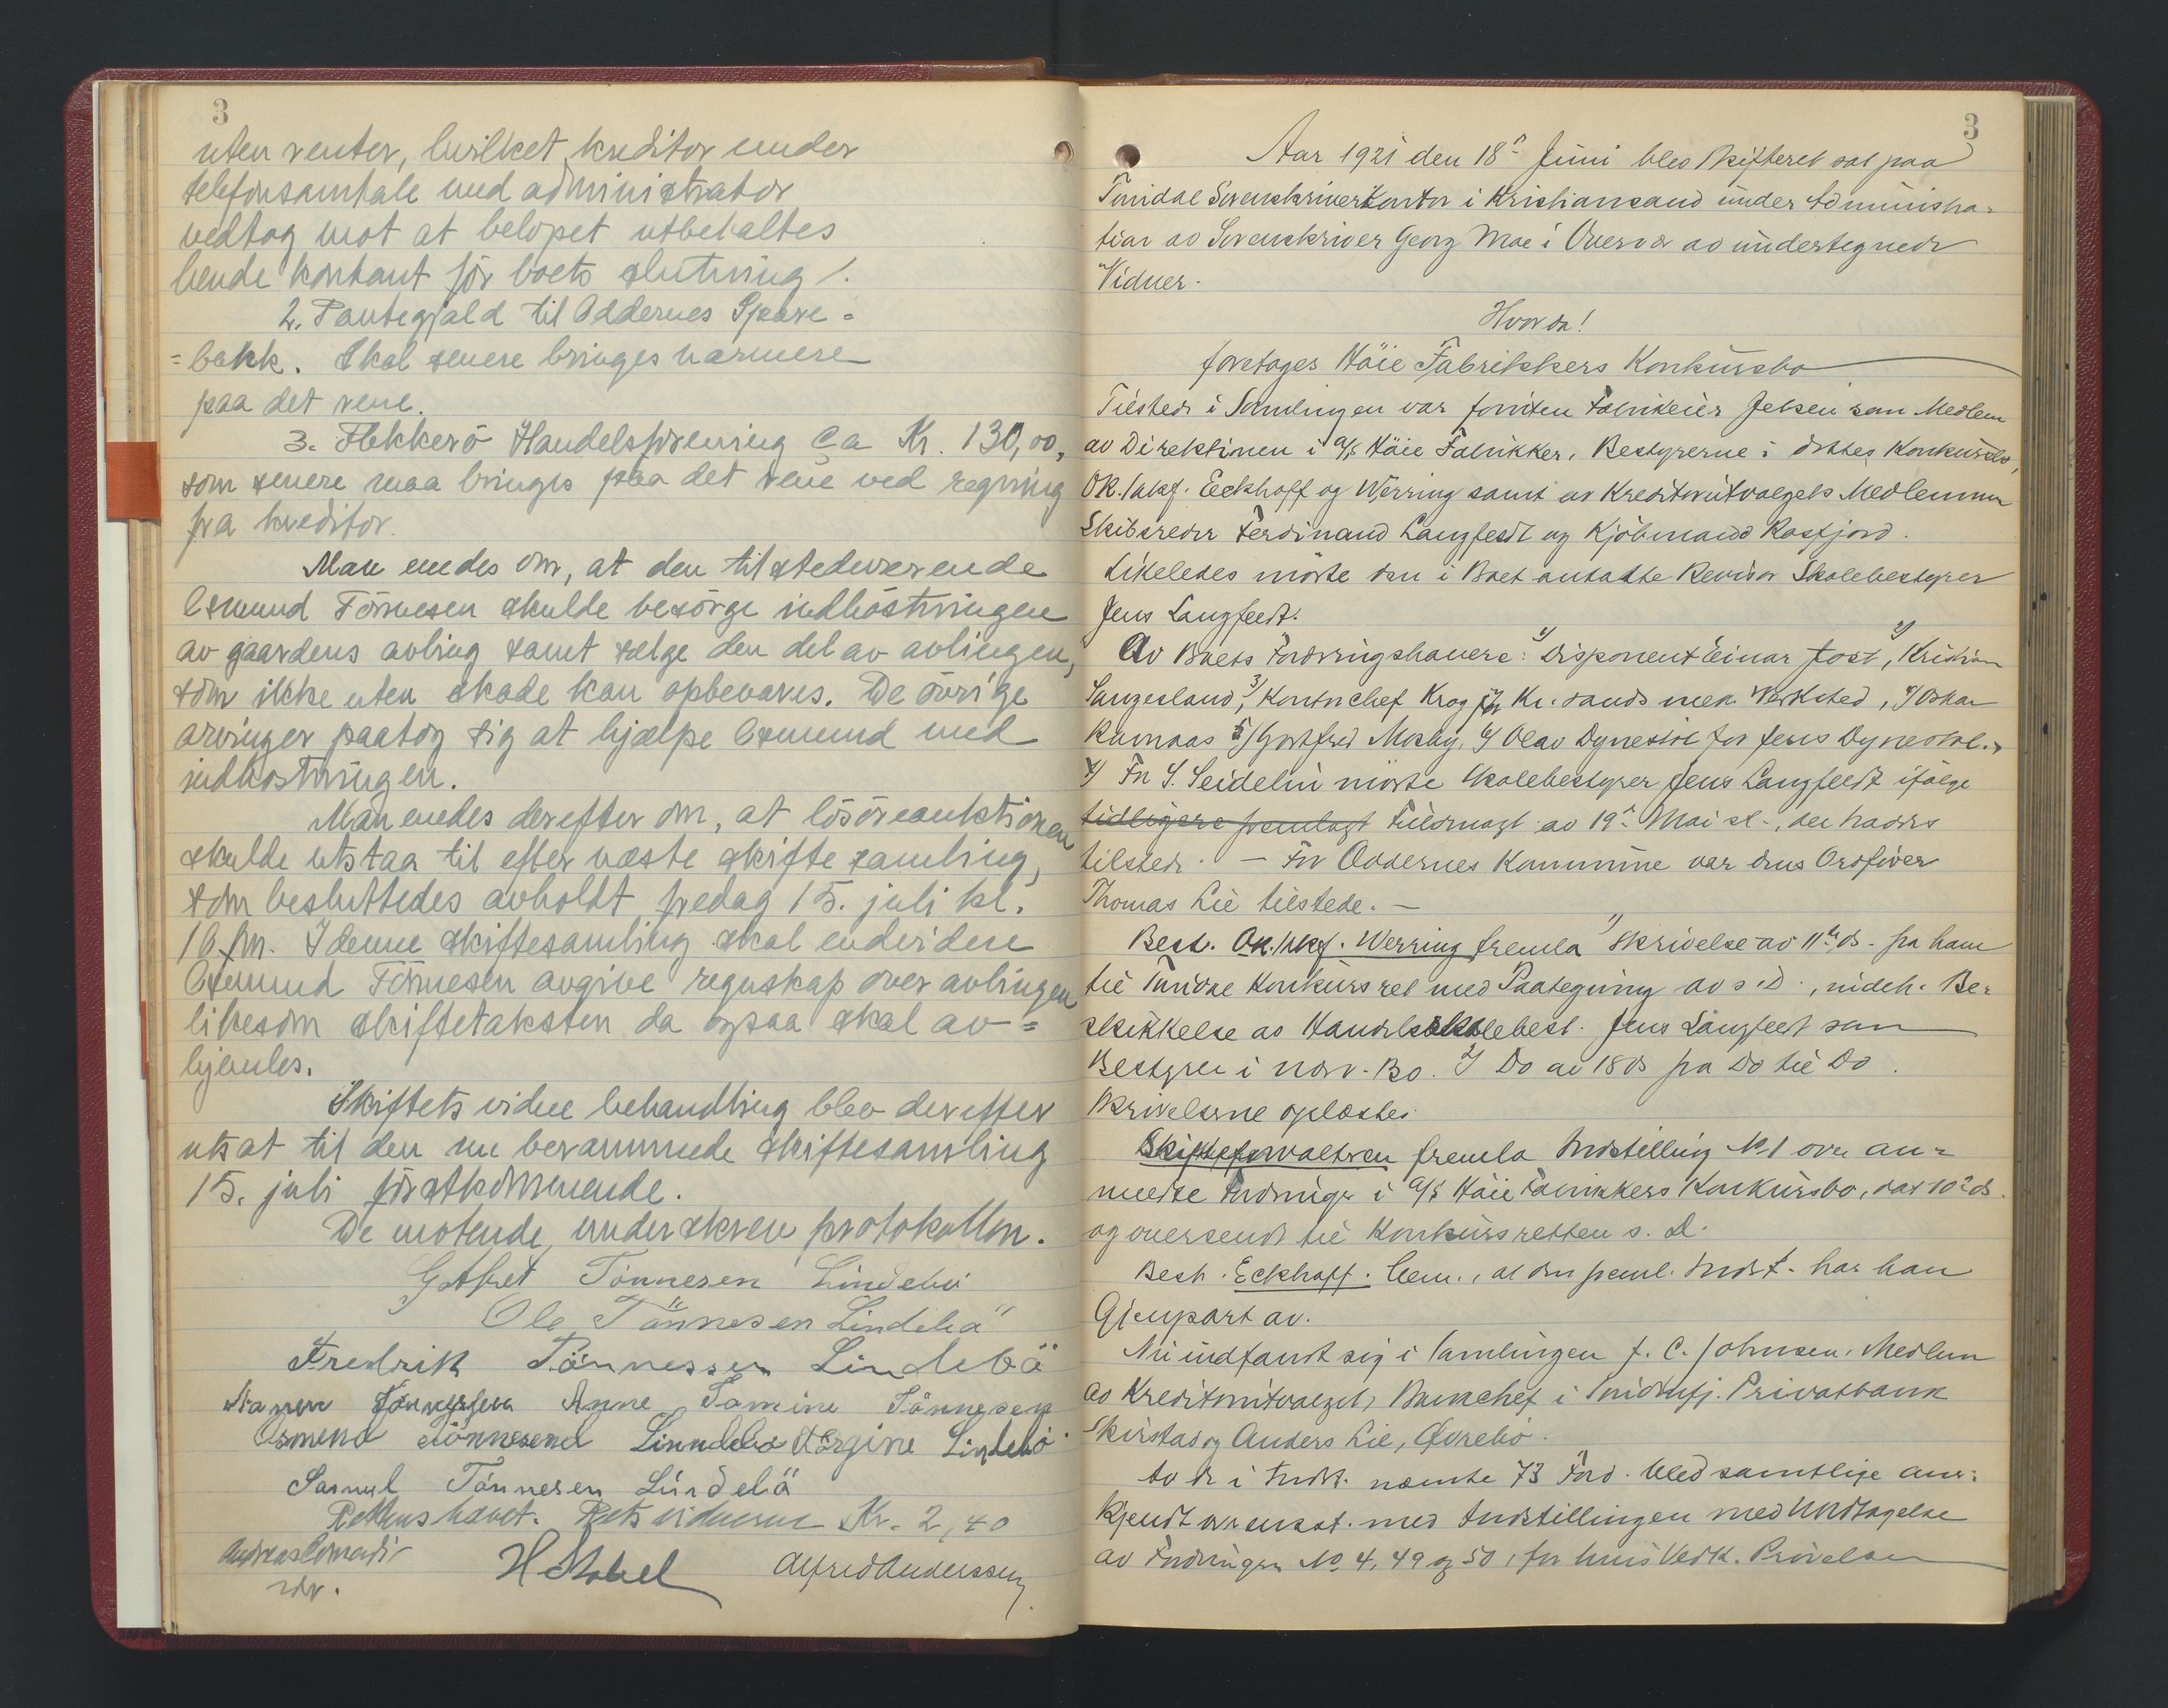 3
uten renter, hvilket kreditor under
telefonsamtale med administrator
vedtog mot at beløpet utbetaltes
hende kontant før boets slutning /.
2. Pantegjæld til Oddernes Spare-
=bank. Skal senere bringes nærmere
paa det rene.
3. Flekkerö Handelsforening ca Kr. 130,00,
som senere maa bringes paa det rene ved regning
fra kreditor.
Man enedes om, at den tilstedeværende
Osmund Tönnesen skulde besörge indhöstningen
av gaardens avling samt sælge den del av avlingen,
som ikke uten skade kan opbevares. De övrige
arvinger paatog sig at hjælpe Osmund med
indhöstningen.
Man enedes derefter om, at lösöreauktionen
skulde utstaa til efter næste skiftesamling,
som besluttedes avholdt fredag 15. juli kl.
10 fm. I denne skiftesamling skal endvidere
Osmund Tönnesen avgive regnskap over avlingen
likesom skiftetaksten da ogsaa skal av=
hjemles.
Skiftets videre behandling blev derefter
utsat til den nu berammede skiftesamling
15. juli förstkommende.
De mötende underskrev protokollen.
Gotfret Tönnesen Lindebö
Ole Tönnesen Lindebö
Fredrik Tönnessen Lindebö
Tönnessen Anne Tomine Tönnesen
Osmund Tönnesend Linndebö Görgine Lindebö
Samuel Tönnesen Lindebö
Retten hævet. Retsvidnerne Kr. 2,40
Alfred Anderssen
3
Aar 1921 den 18de Juni blev Skifteret sat paa
Torridal Sorenskriverkontor i Kristiansand under Administra-
tion av Sorenskriver Georg Moe i Overvær av undertegnede
Vidner.
Hvorda!
foretages Höie Fabrikkers Konkursbo
Tilstede i Samlingen var foruten Fabrikeier Jebsen som Medlem
av Direktionen i A/S Höie Fabrikker, Bestyrerne i dettes Konkursbo,
OR.sakf. Eckhoff og Werring samt av Kreditorutvalgets Medlemmer
Skibsreder Ferdinand Langfeldt og Kjöbmand Rosfjord.
Likeledes mötte den i Boet antatte Revisor Skolebestyrer
Jens Langfeldt.
Av Boets Fordringshavere: 1/ Disponent Einar Jost, 2/ Kristian
Langesland, 3/ Kontorchef Krog for Kr.sands mek. Verksted, 4/ Oskar
5/ Gottfred Mosby, 6/ Olav Dynestöl for Jens Dynestöl.
7/ For S. Seidelin mötte Skolebestyrer Jens Langfeldt ifölge
tidligere fremlagt Fuldmagt av 19de Mai sl.,
tilstede. — For Oddernes Kommune var dens Ordförer
Thomas Lie tilstede. —
Best. OR.sakf. Werring fremla 1/ Skrivelse av 11te ds. fra ham
til Torridal Konkursret med Paategning av s.D., Be-
skikkelse av Handelsskolebest. Jens Langfeldt som
Bestyrer i nærv. Bo. 2/ Do av 18 ds fra Do til Do.
Skrivelserne oplæstes.
Skifteforvalteren fremla Indstilling No. 1 over an-
meldte Fordringer i A/S Höie Fabrikkers Konkursbo, dat 10de ds.
og oversendt til Konkursretten s. D.
Best. Eckhoff bem., at den freml. Indst. har han
Gjenpart av.
Nu indfandt sig i Samlingen J. C. Johnsen, Medlem
av Kreditorutvalget, Bankchef i Privatbank
Skirstad og Anders Lie, Övrebö.
Av de i Indst. nævnte 73 Ford. blev samtlige aner-
kjendt overensst. med Indstillingen med Undtagelse
av Fordringer No 4, 49 og 50, for hvis Vedk. Prövelsen